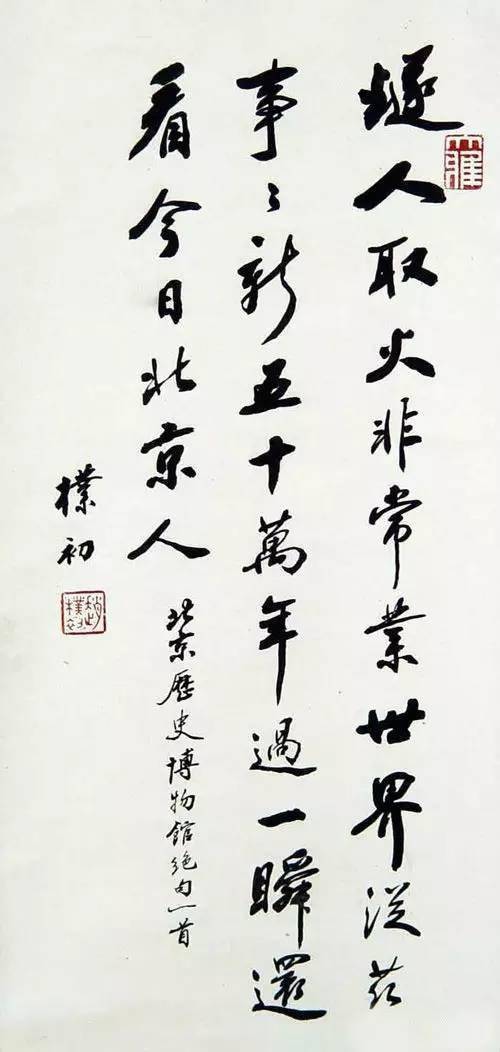 鐩人取火非常業世界從茲
事〻新五十萬年過一瞬還
看今日北京人
北京歷史博物館絕句一首
樸初
趙樸初